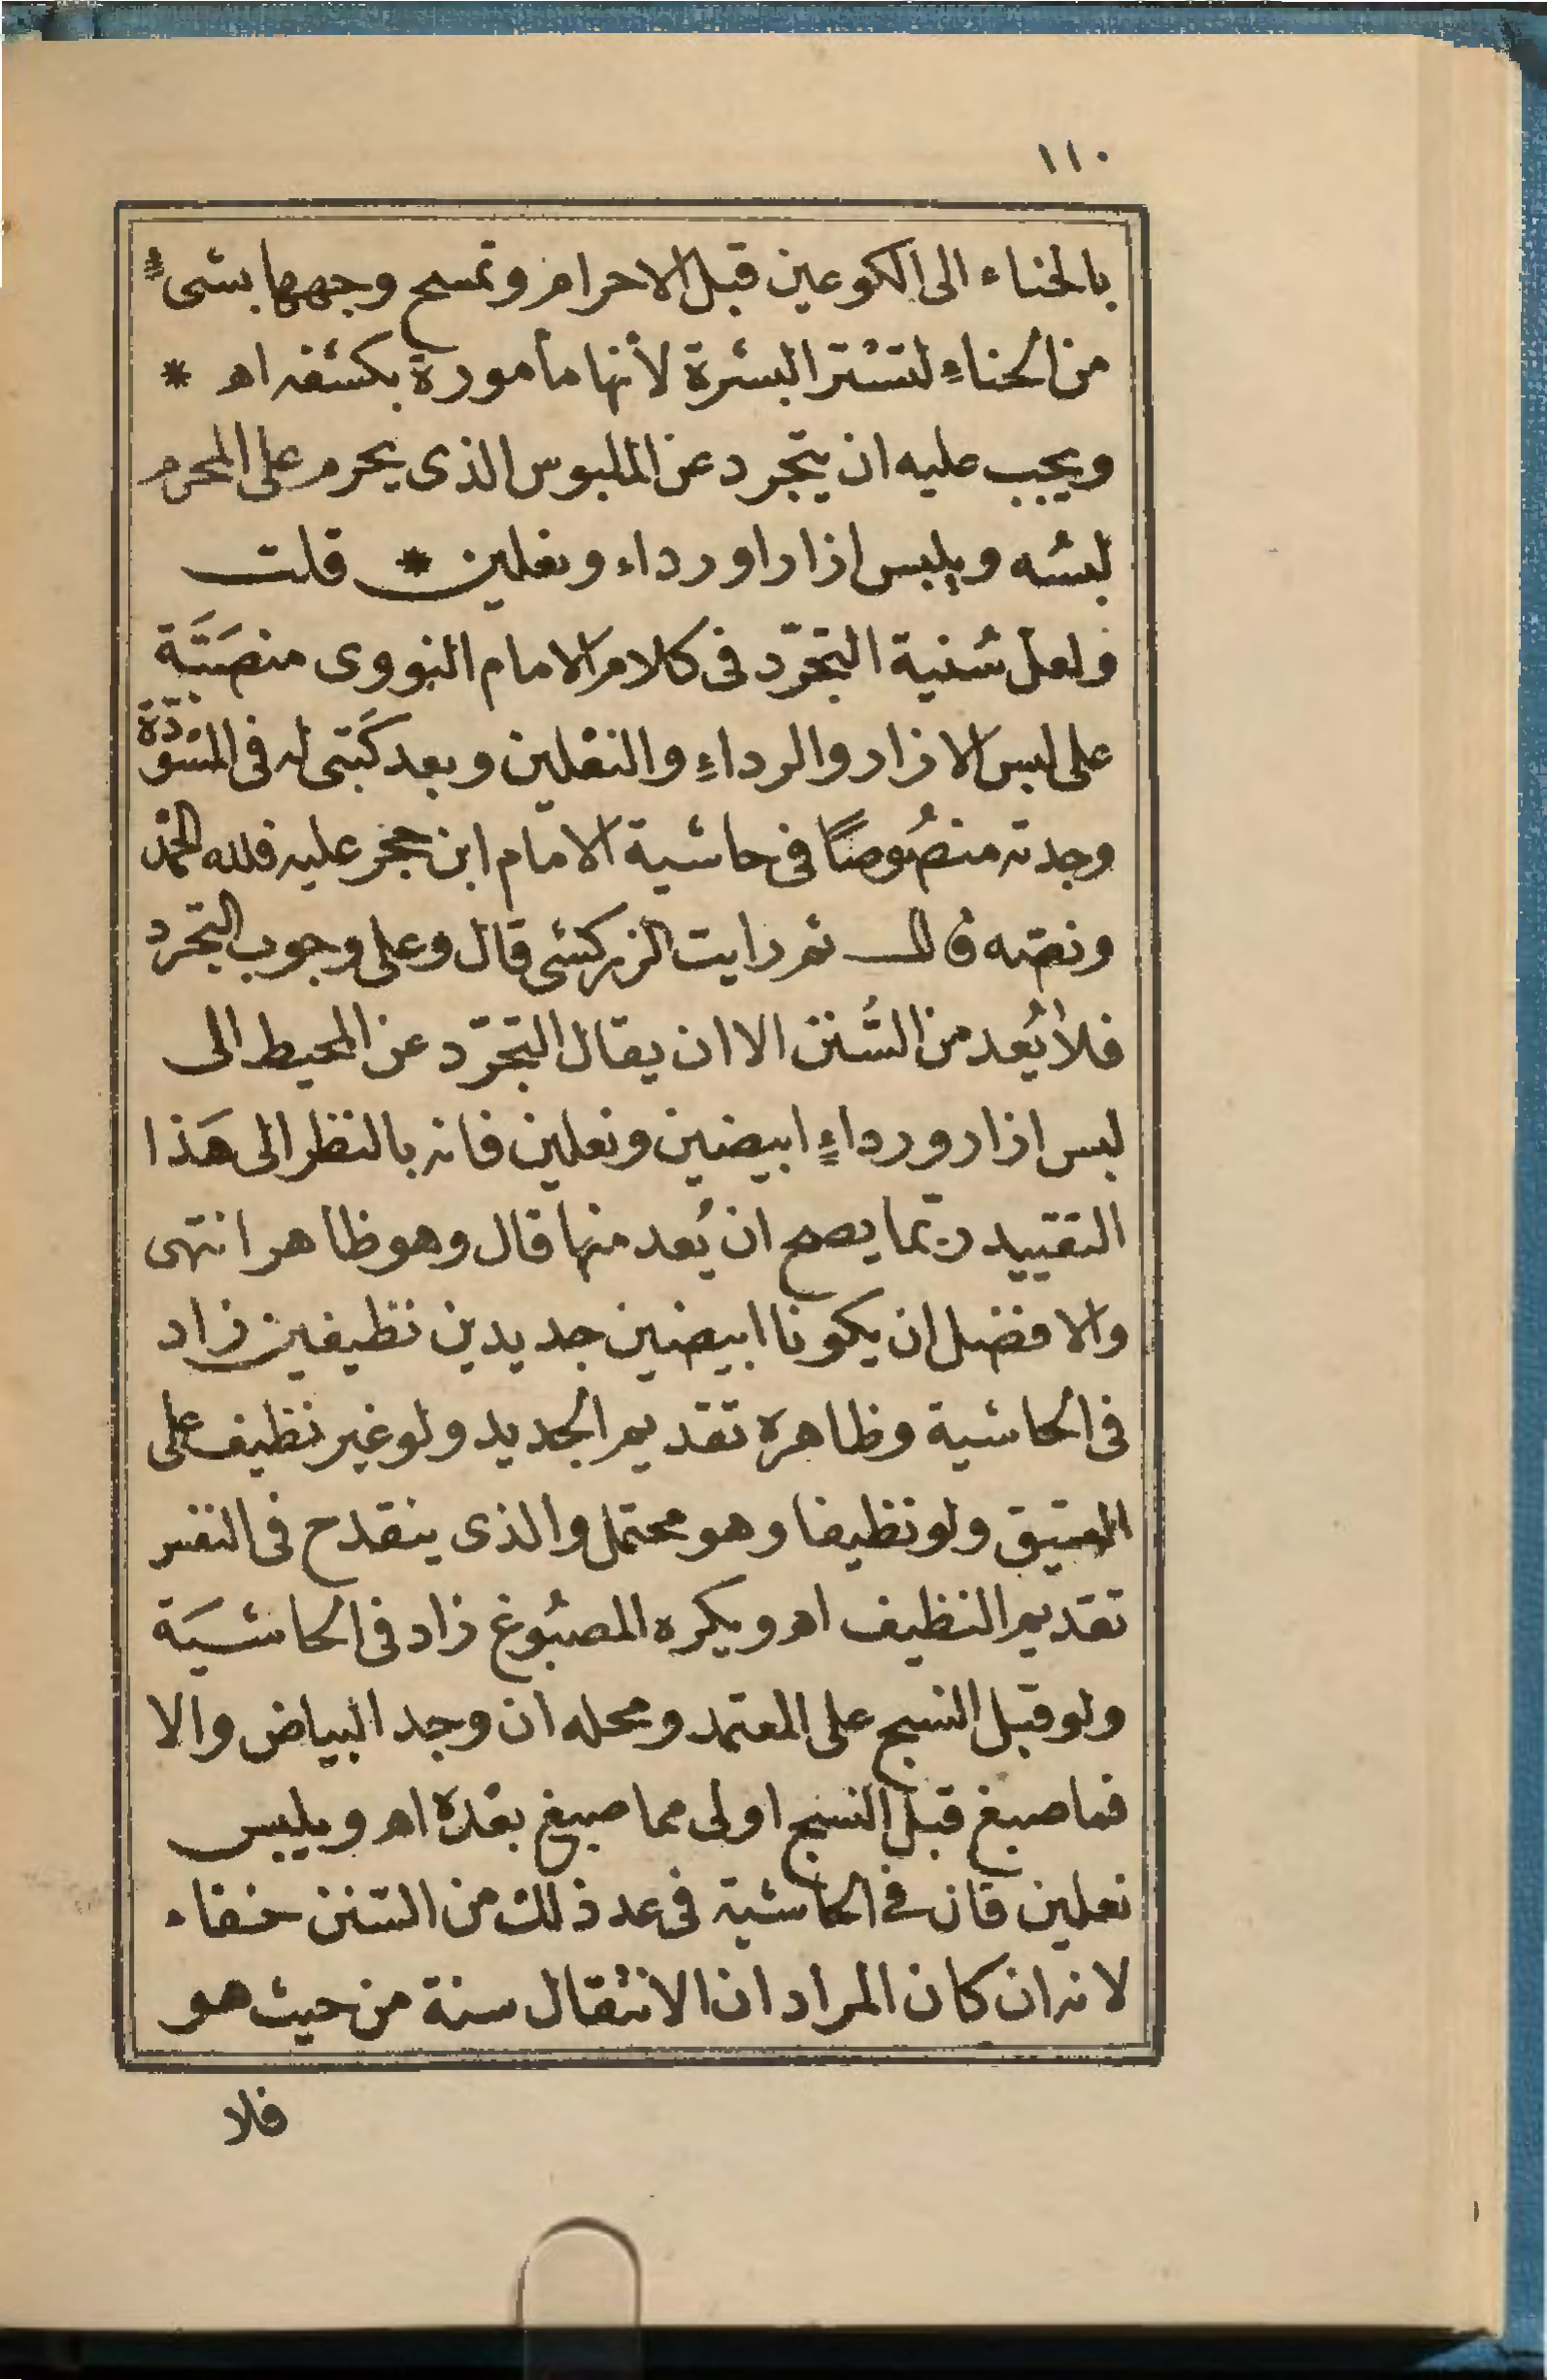 ١١٠
بالحناء الى الكوعين قبل الاحرام وتمسح وجهها بشىء
من الحناءِ لتستر البشرة لأنها مأمورة بكشفه اهـ *
ويجب عليه ان يتجرد عن الملبوس الذى يحرم على المحرم
لبسه ويلبس ازارا ورداء ونعلين * قلت
ولعل سُنية التجرّد فى كلام الامام النووى منصَبَّة
على لبس الازار والرداءِ والنعلين وبعد كَتبى له فى المسَوَّدَة
وجدته منصُوصًا فى حاشية الامام ابن حجر عليه فلله الحمد
ونصّه قال ثم رايت الزركشى قال وعلى وجوب التجرد
فلا يُعد من السُّنن الا ان يقال التجرّد عن المحيط الى
لبس ازار ورداءٍ ابيضين ونعلين فانه بالنظر الى هَذا
التقييد ربّما يصح ان يُعد منها قال وهو ظاهر انتهى
والافضل ان يكونا ابيضين جديدين نظيفين زاد
فى الحاشية وظاهره تقديم الجديد ولو غير نظيف على
العتيق ولو نظيفا وهو محتمل والذى ينقدح فى النفس
تقديم النظيف اهـ ويكره المصبُوغ زاد فى الحاشيَة
ولو قبل النسج على المعتمد ومحله ان وجد البياض والا
فما صبغ قبل النسج اولى مما صبغ بعْدَه اهـ ويلبس
نعلين قان فى الحاشية فى عد ذلك من السّنن خفاء
لانه ان كان المراد ان الانتقال سنة من حيث هو
فلا